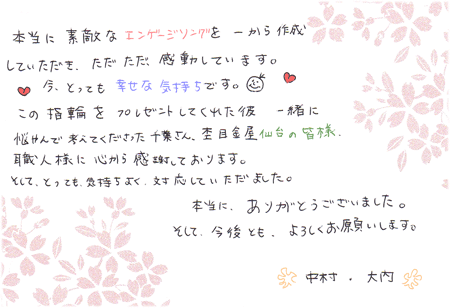 本当に 素敵な エンゲージリングを 一から作成
していただき、ただただ 感動しています。
今、とっても 幸せな 気持ちです。
この 指輪を プレゼントしてくれた彼 一緒に
悩んで 考えてくださった 千葉さん、杢目金屋 仙台の皆様、
職人様に 心から 感謝しております。
そして、とっても、気持ちよく、対応していただきました。
本当に、ありがとうございました。
そして、今後とも、よろしくお願いします。
中村 ・ 大内